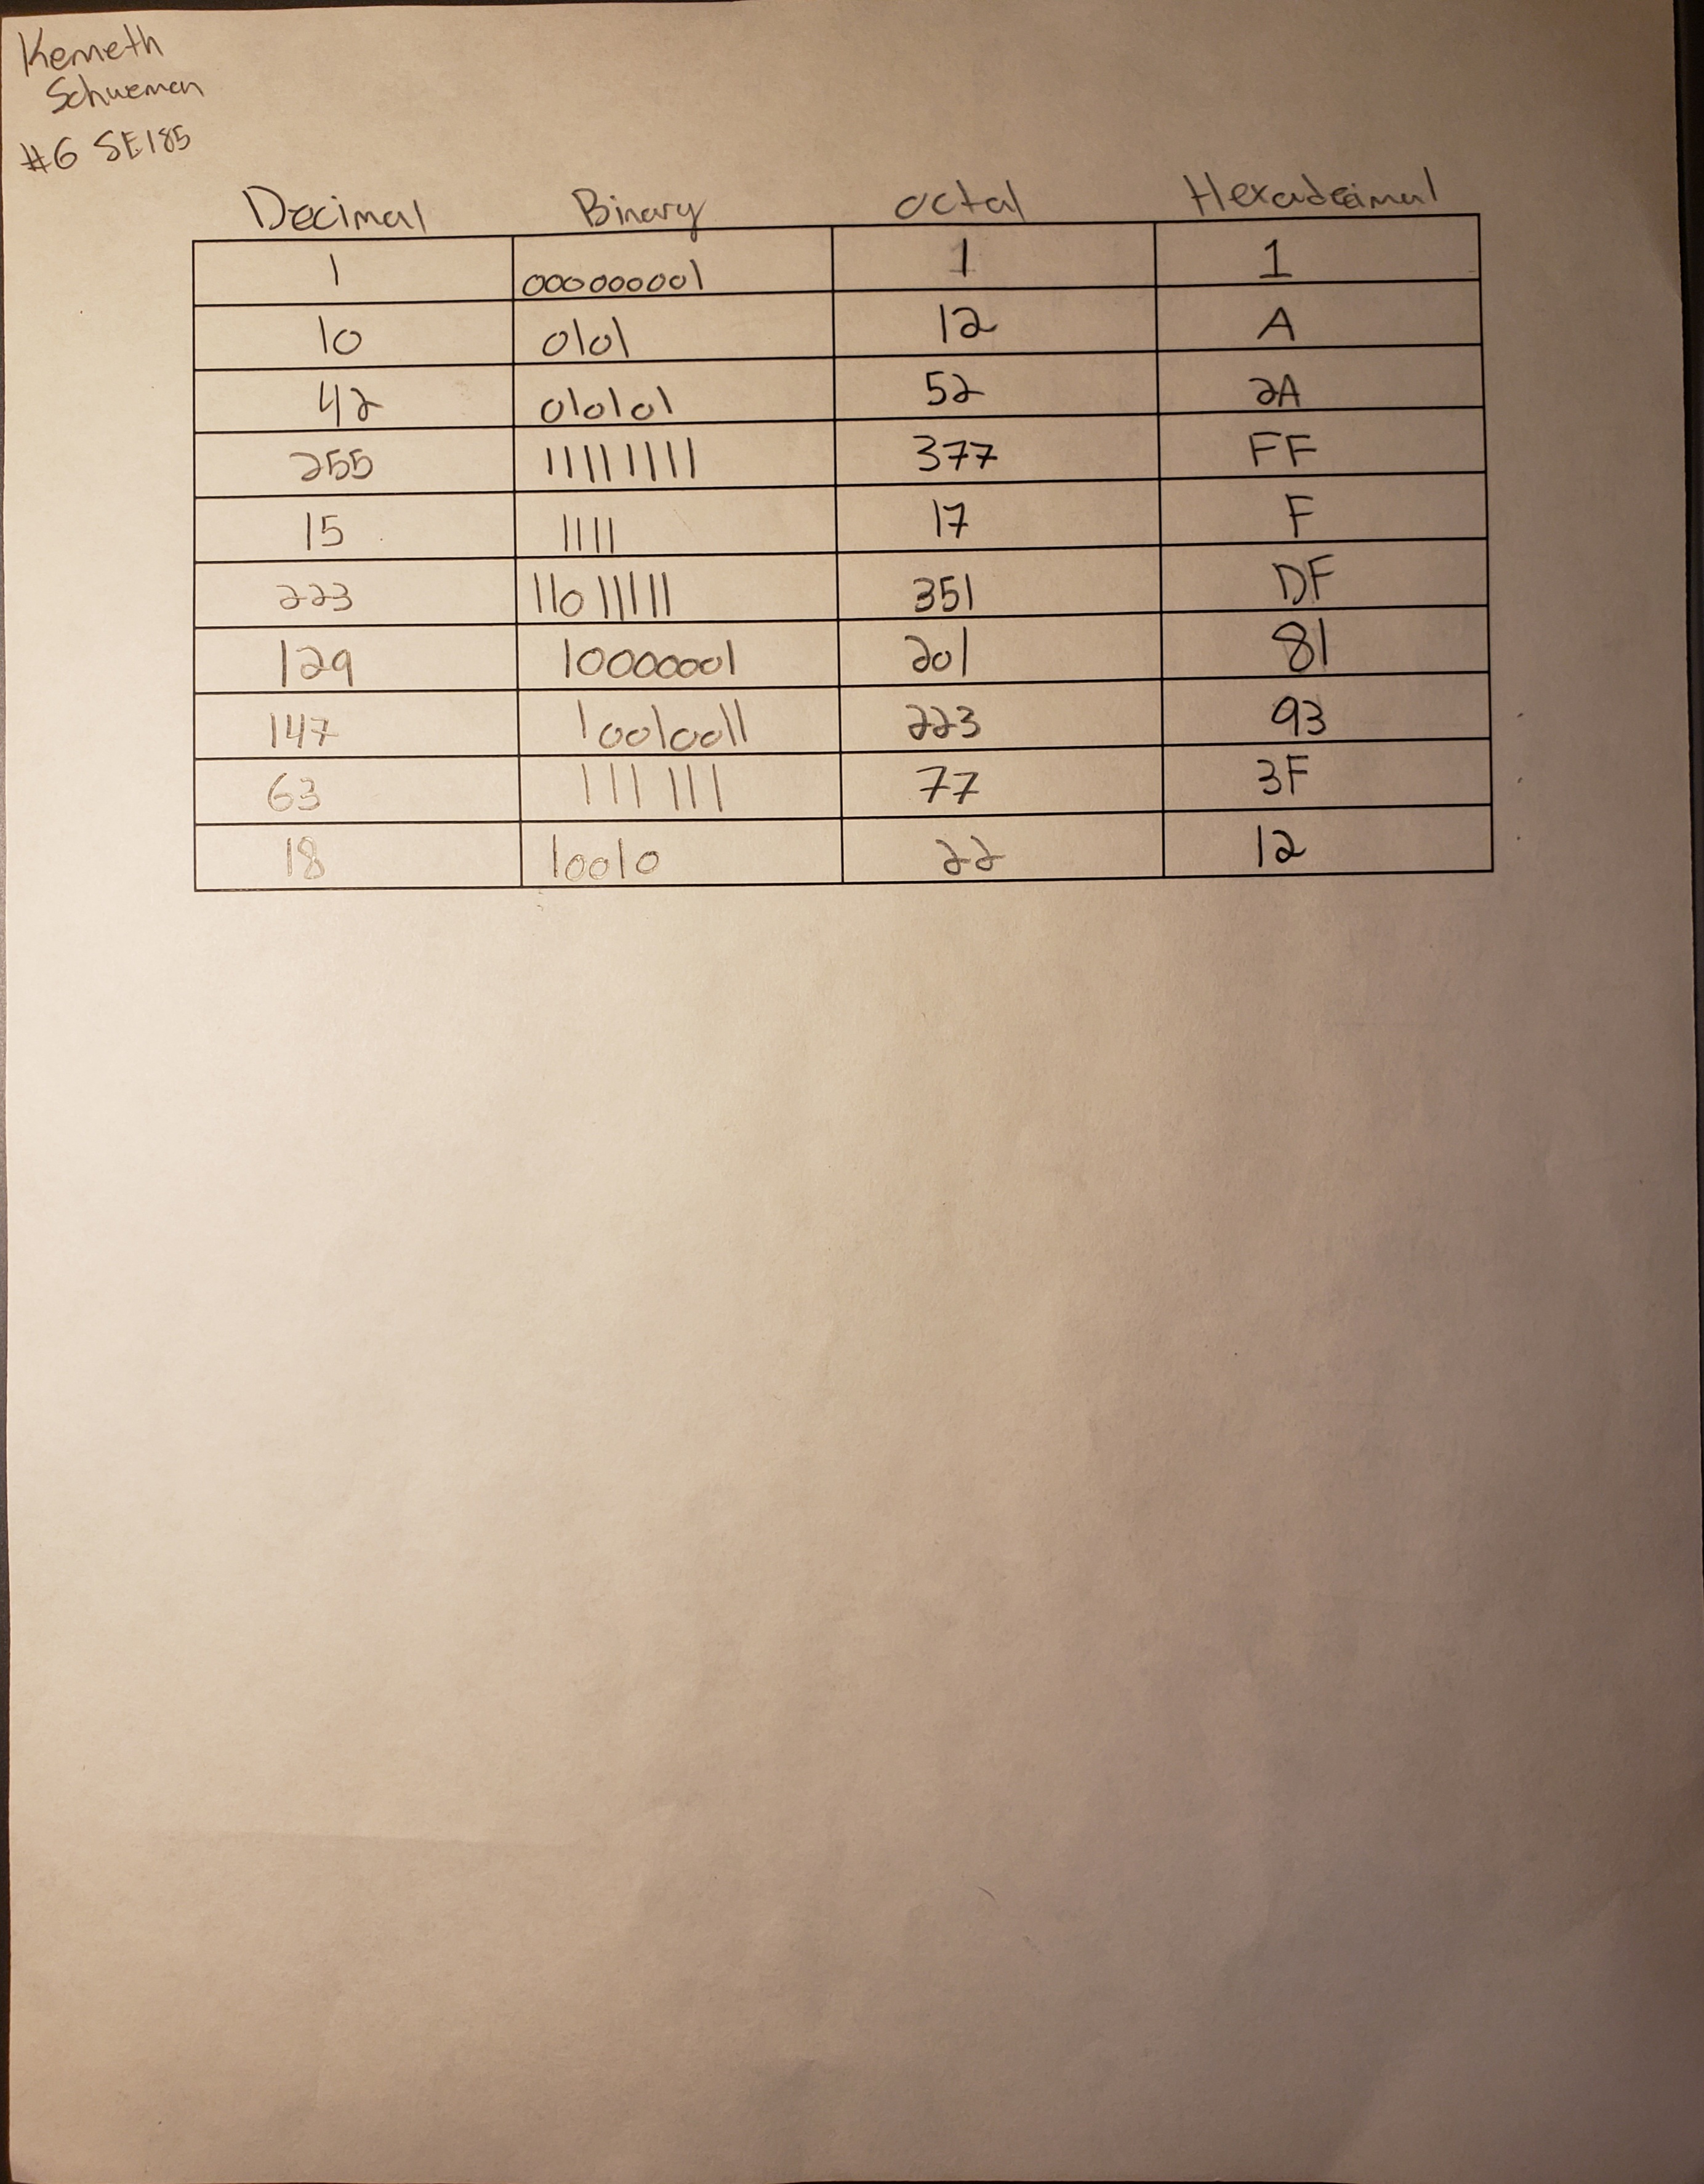 Kenneth
Schueman
#6 SE185
Decimal Binary Octal Hexadecimal
1 000000001 1 1
10 0101 12 A
42 010101 52 2A
255 11111111 377 FF
15 1111 17 F
223 11011111 351 DF
129 10000001 201 81
147 10010011 223 93
63 111111 77 3F
18 10010 22 12